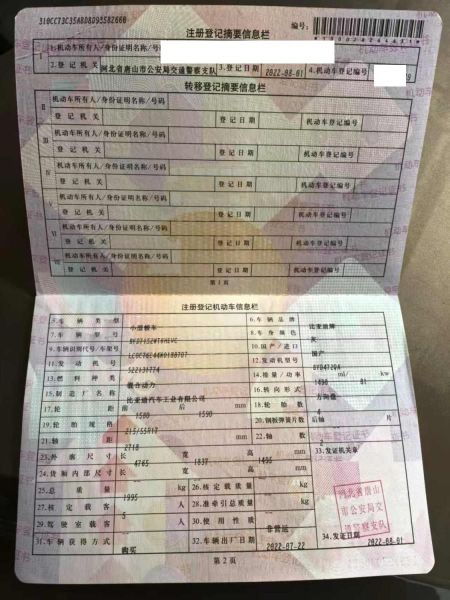 注册登记摘要信息栏
编号:
I 1.机动车所有人/身份证明名称/号码
2.登记机关 河北省唐山市公安局交通警察支队 3.登记日期 2022-08-01 4.机动车登记编号
转移登记摘要信息栏
II 机动车所有人/身份证明名称/号码
登记机关 登记日期 机动车登记编号
III 机动车所有人/身份证明名称/号码
登记机关 登记日期 机动车登记编号
机动车所有人/身份证明名称/号码
登记机关 登记日期 机动车登记编号
V 机动车所有人/身份证明名称/号码
登记机关 登记日期 机动车登记编号
VI 机动车所有人/身份证明名称/号码
登记机关 登记日期 机动车登记编号
VII 机动车所有人/身份证明名称/号码
登记机关 登记日期 机动车登记编号
第1页
注册登记机动车信息栏
5.车辆类型 小型轿车 6.车辆品牌 比亚迪牌
7.车辆型号 8.车身颜色 灰
9.车辆识别代号/车架号 10.国产/进口 国产
11.发动机号 522131774 12.发动机型号 BYD472QA
13.燃料种类 混合动力 14.排量/功率 1498 ml/ 81 kw
15.制造厂名称 比亚迪汽车工业有限公司 16.转向形式 方向盘
17.轮距 前 1580 后 1590 mm 18.轮胎数 4
19.轮胎规格 215/55R17 20.钢板弹簧片数 后轴 片
21.轴距 2718 mm 22.轴数 2
23.外廓尺寸 长 4765 宽 1837 高 1495 mm 33.发证机关章
24.货厢内部尺寸 长 宽 高 mm
25.总质量 1995 kg 26.核定载质量 kg
27.核定载客 5 人 28.准牵引总质量 kg
29.驾驶室载客 人 30.使用性质 非营运
31.车辆获得方式 购买 32.车辆出厂日期 2022-07-22 34.发证日期 2022-08-01
河北省唐山
市公安局交
通警察支队
第2页